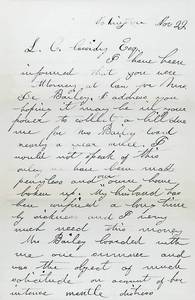 Nov 22
L. C. Cassidy Esq.
I have been
informed that you were
Attorney at Law
Dr. Bailey. I address you
hoping it may be in your
power to collect a bill due
me for Mrs Bailey board
nearly a year since. I
would not speak of this
only have been small
and our home
broken up. My husband has
been confined a long time
by sickness and I very
much need this money
Mrs Bailey boarded with
me one summer and
was the object of much
solicitude on account of her
intense mental distress